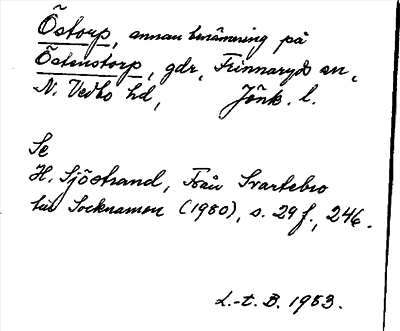 Östorp, annan benämning på
Östenstorp, gdr, Frinnaryds sn,
N. Vedbo hd, Jönk. l.
Se
H. Sjöstrand, Från Svartebro
till Socknamen (1980), s. 29 f., 246.
L.-t. B. 1983.